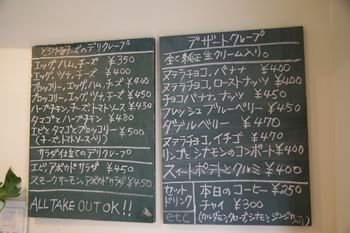 とろける チーズのデリクレープ
エッグ, ハム, チーズ ¥350
エッグ, ツナ, チーズ ¥400
ブロッコリー, エッグ, ハム, チーズ ¥400
ブロッコリー, エッグ, ツナ, チーズ ¥450
ハーブチキン, チーズ, トマトソース ¥430
タマゴとハーブチキン ¥480
エビとタマゴとブロッコリー ¥500
(チーズ, トマトソース入り)
サラダ仕立てのデリクレープ
エビ, アボカドサラダ ¥450
スモークサーモン, アボカドサラダ ¥450
ALL TAKE OUT OK!!
デザートクレープ
全て純正生クリーム入り。
ヌテラチョコ, バナナ ¥400
ヌテラチョコ, ローストナッツ ¥400
チョコバナナナッツ ¥450
フレッシュブルーベリー ¥450
ダブルベリー ¥470
ヌテラチョコ, イチゴ ¥470
リンゴとシナモンのコンポート ¥400
スイートポテトとクルミ ¥400
セットドリンク etc
本日のコーヒー ¥250
チャイ ¥300
(カルダモン, クローブ, シナモン, ジンジャー入り)